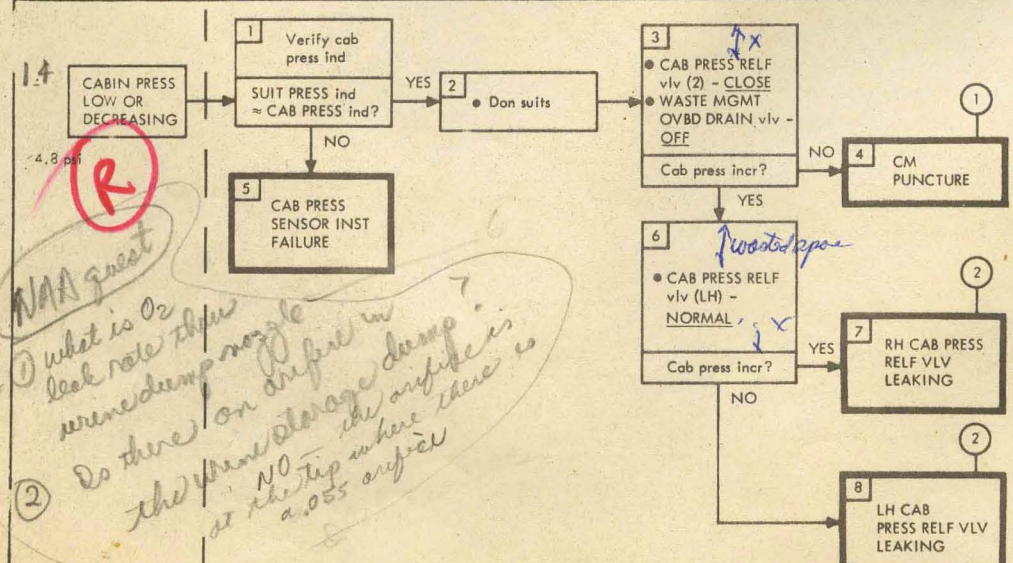 1.4
CABIN PRESS
LOW OR
DECREASING
4.8 psi
R
1
Verify cab
press ind
SUIT PRESS ind
≈ CAB PRESS ind?
YES
NO
2
• Don suits
3
x
• CAB PRESS RELF
vlv (2) – CLOSE
• WASTE MGMT
OVBD DRAIN vlv –
OFF
Cab press incr?
NO
YES
1
4
CM
PUNCTURE
5
CAB PRESS
SENSOR INST
FAILURE
6
wasted space
• CAB PRESS RELF
vlv (LH) –
NORMAL
x
Cab press incr?
YES
NO
2
7
RH CAB PRESS
RELF VLV
LEAKING
2
8
LH CAB
PRESS RELF VLV
LEAKING
NAA quest
① what is O2
leak rate thru
urine dump nozzle
②
Is there an orifice in
the urine storage dump?
NO – the orifice is
at the tip where there is
a .055 orifice